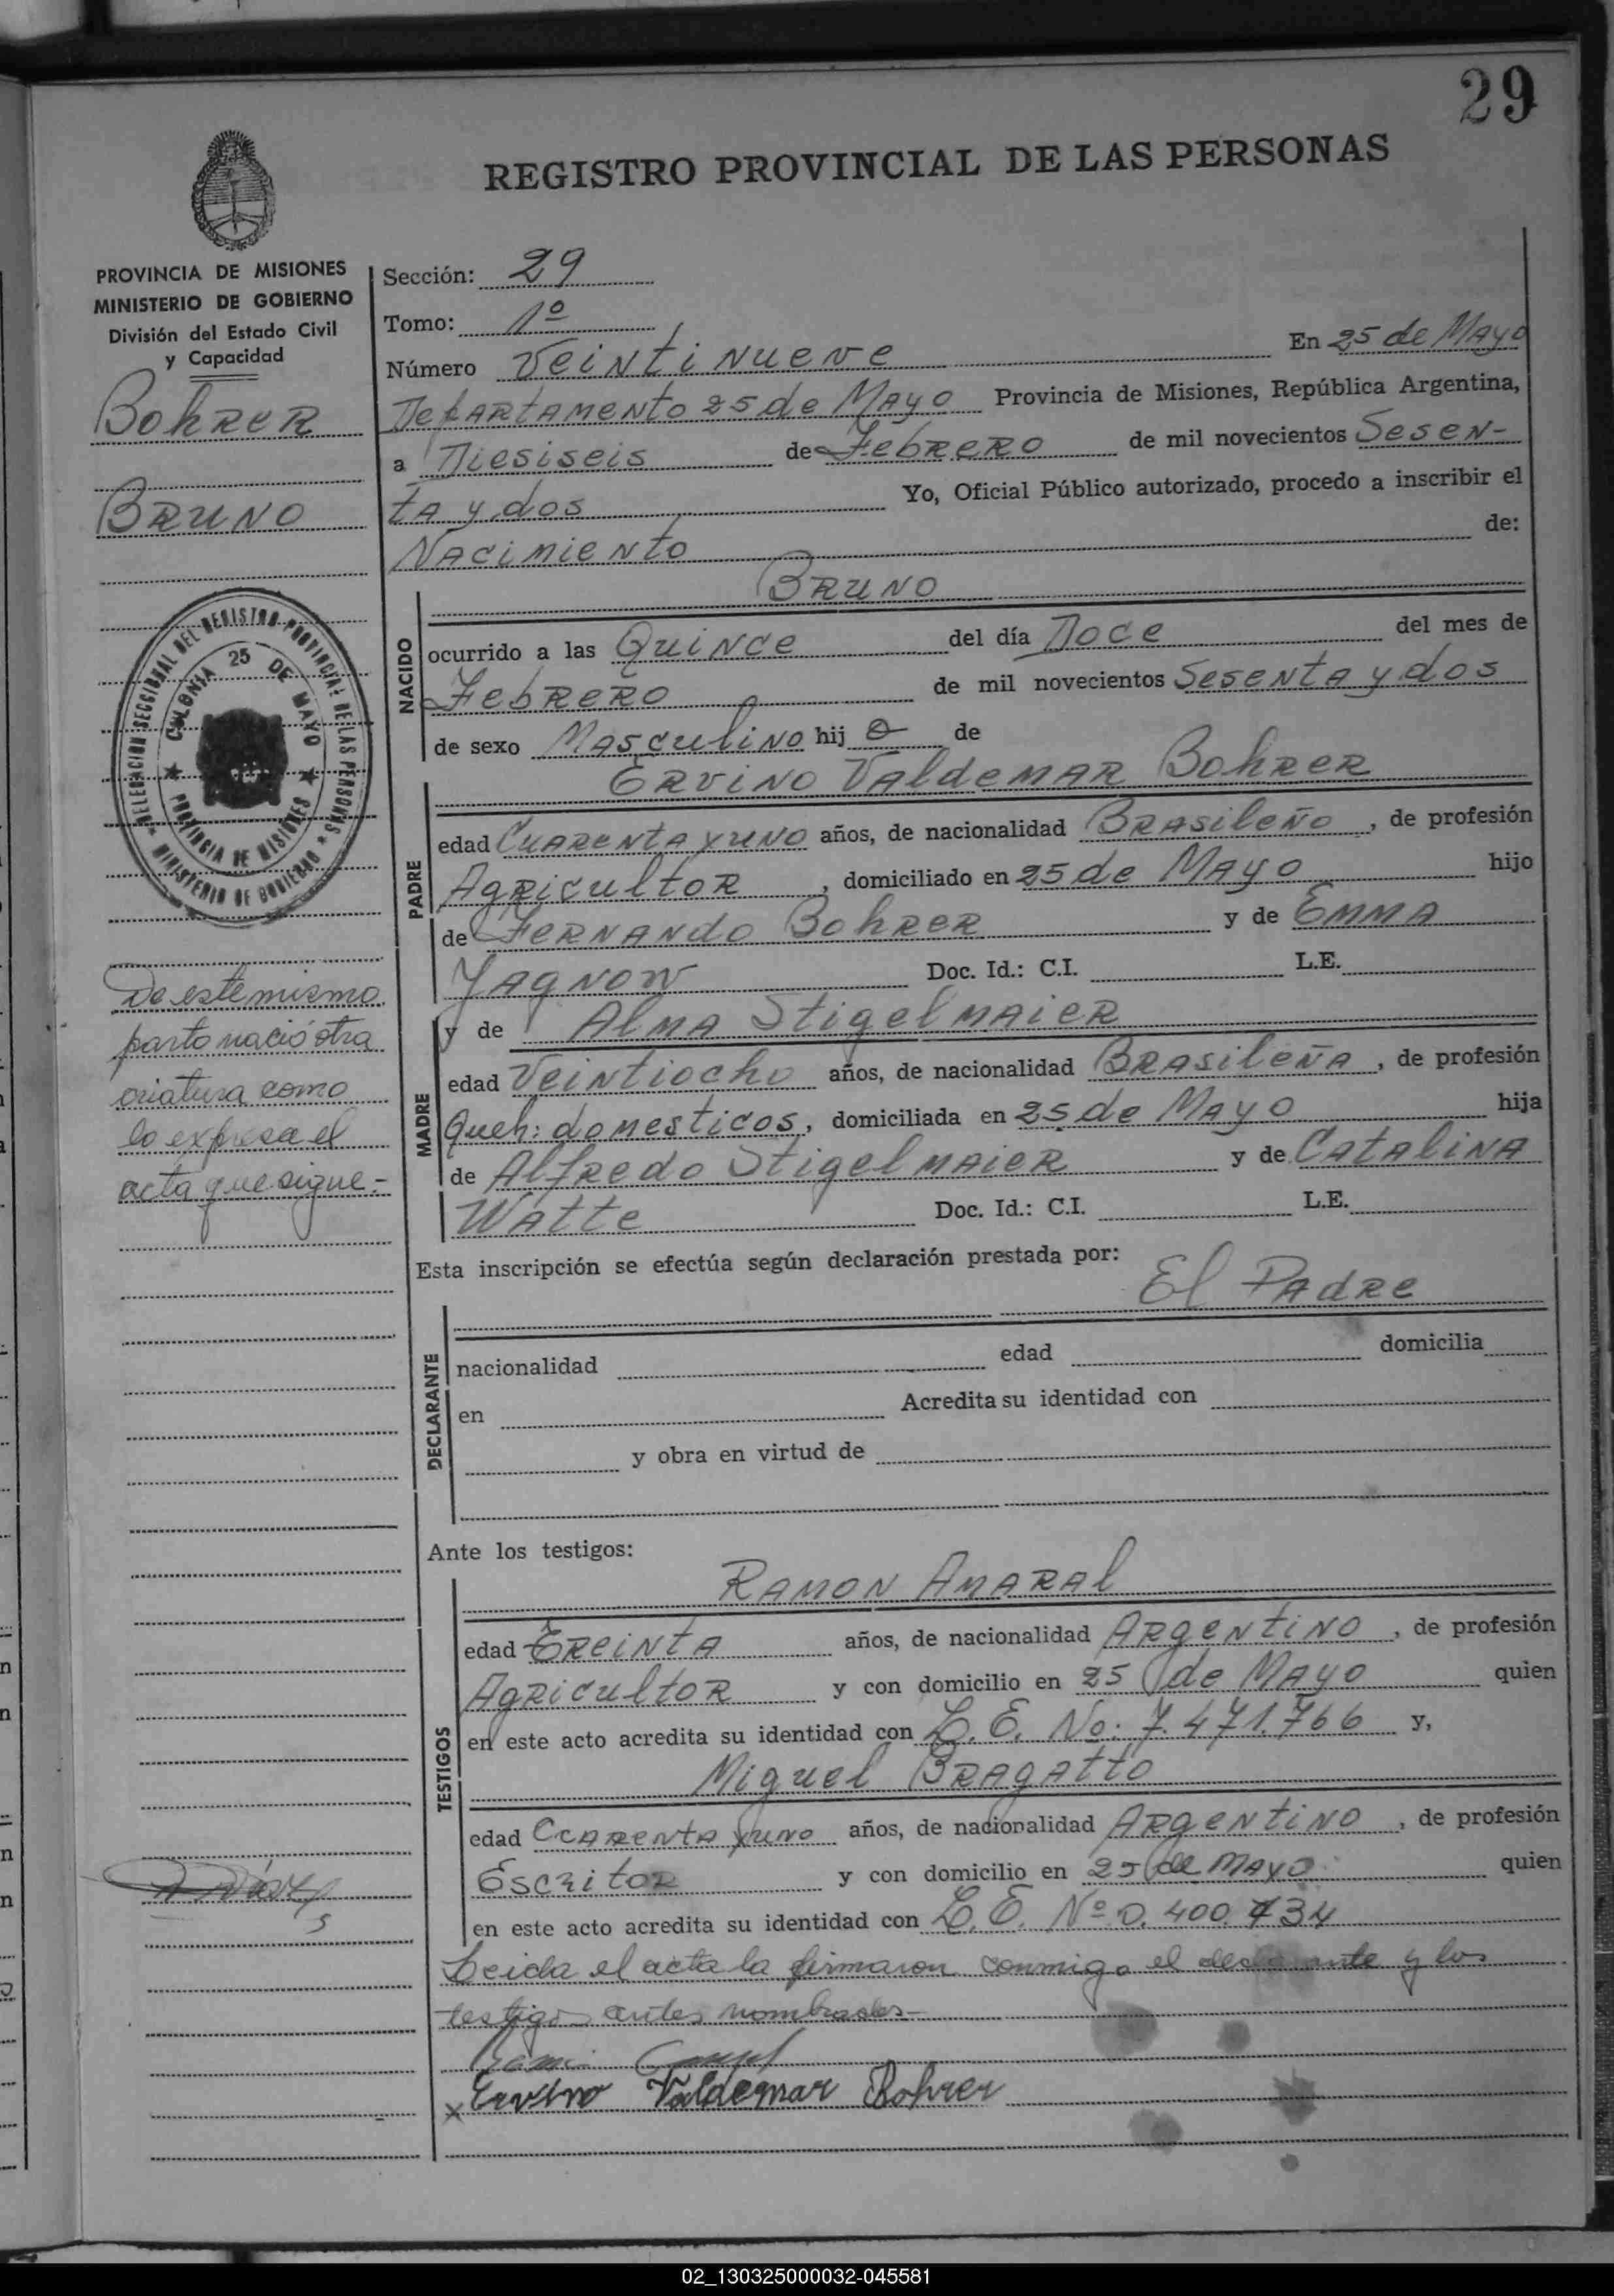 29
REGISTRO PROVINCIAL DE LAS PERSONAS
PROVINCIA DE MISIONES
MINISTERIO DE GOBIERNO
División del Estado Civil
y Capacidad
Bohrer
Bruno
DELEGACION SECCIONAL DEL REGISTRO PROVINCIAL DE LAS PERSONAS
MINISTERIO DE GOBIERNO
COLONIA 25 DE MAYO
PROVINCIA DE MISIONES
De este mismo
parto nació otra
criatura como
lo expresa el
acta que sigue.-
Sección: 29
Tomo: 1º
Número Veintinueve En 25 de Mayo
Departamento 25 de Mayo Provincia de Misiones, República Argentina,
a Diesiseis de Febrero de mil novecientos Sesen-
ta y dos Yo, Oficial Público autorizado, procedo a inscribir el
Nacimiento de:
NACIDO
Bruno
ocurrido a las Quince del día Doce del mes de
Febrero de mil novecientos Sesenta y dos
de sexo Masculino hijo de
PADRE
Ervino Valdemar Bohrer
edad Cuarenta y uno años, de nacionalidad Brasileño, de profesión
Agricultor, domiciliado en 25 de Mayo hijo
de Fernando Bohrer y de Emma
Jagnow Doc. Id.: C.I. L.E.
MADRE
y de Alma Stigelmaier
edad Veintiocho años, de nacionalidad Brasileña, de profesión
Queh: domesticos, domiciliada en 25 de Mayo hija
de Alfredo Stigelmaier y de Catalina
Watte Doc. Id.: C.I. L.E.
Esta inscripción se efectúa según declaración prestada por:
El Padre
DECLARANTE
nacionalidad edad domicilia
en Acredita su identidad con
y obra en virtud de
Ante los testigos:
TESTIGOS
Ramon Amaral
edad Treinta años, de nacionalidad Argentino, de profesión
Agricultor y con domicilio en 25 de Mayo quien
en este acto acredita su identidad con L.E. No: 7.471.766 y,
Miguel Bragatto
edad Ccarenta y uno años, de nacionalidad Argentino, de profesión
Escritor y con domicilio en 25 de Mayo quien
en este acto acredita su identidad con L.E. Nº 0.400.734
Leida el acta la firmaron conmigo el declarante y los
testigos antes nombrados-
x Ervino Valdemar Bohrer
02_130325000032-045581